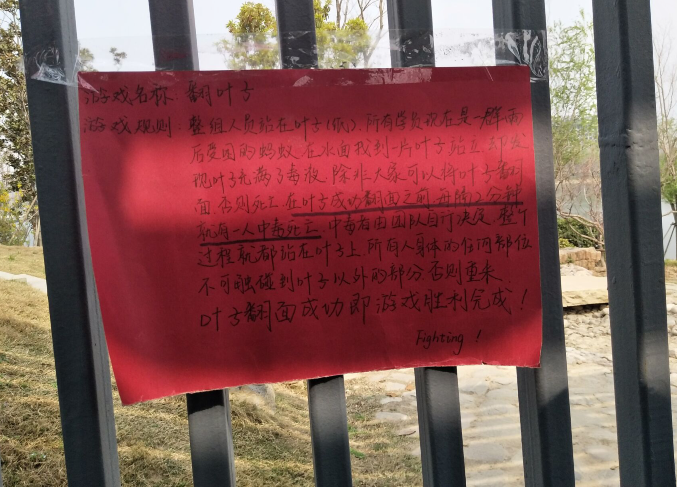 游戏名称：翻叶子
游戏规则：整组人员站在叶子(纸)，所有学员现在是一群雨
后受困的蚂蚁，在水面找到一片叶子站立，却发
现叶子充满了毒液，除非大家可以将叶子翻
面，否则死亡，在叶子成功翻面之前，每隔2分钟
就有一人中毒死亡，中毒者由团队自行决定，整个
过程就都站在叶子上，所有人身体的任何部位
不可触碰到叶子以外的部分，否则重来
叶子翻面成功即游戏胜利完成！
Fighting！